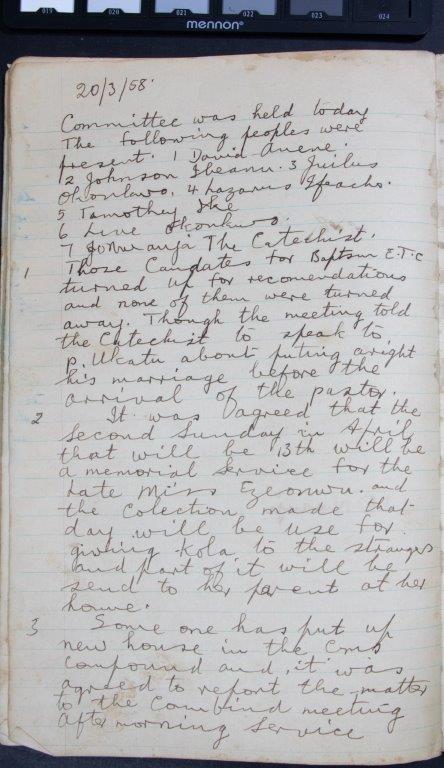 019 020 021 022 023 024
mennon
20/3/58.
Committee was held today
The following peoples were
present. 1 David Anene.
2 Johnson Ibeanu. 3 Juilus
Okonkwo. 4 Lazarus Ifeacho.
5 Tamothey Ike
6 Live Okonkwo.
7 The Catechist.
1 Those Candates for Baptsm E.T.C
turned up for recomendations
and none of them were turned
away. Though the meeting told
the Catechist to speak to
P. Ukatu about puting aright
his marriage before the
arrival of the pastor.
2 It was agreed that the
Second Sunday in April
that will be 13th will be
a memorial Service for the
Late Miss Ezeonwu. and
the Colection made that
day will be use for
giving kola to the strangers
and part of it will be
send to her parent at her
home.
3 Some one has put up
new house in the Cms
Compound and it was
agreed to report the matter
to the Combind meeting
After morning Service